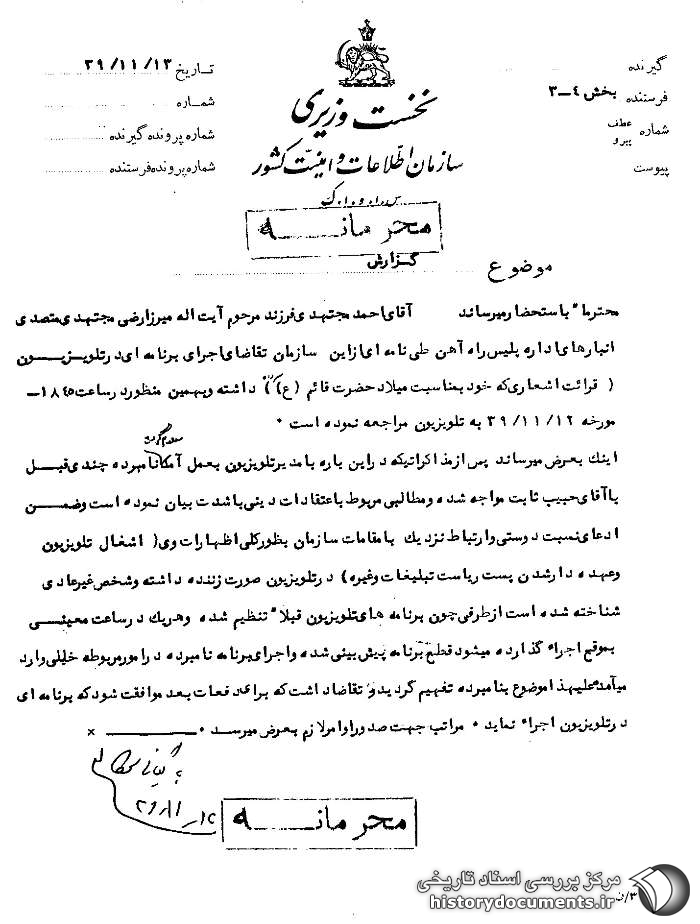 گیرنده
فرستنده بخش ۴ــ۳
شماره عطف پیرو
پیوست
نخست وزیری
سازمان اطلاعات و امنیت کشور
س.ا.و.ا.ک
تاریخ ۳۹/۱۱/۱۳
شماره
شماره پرونده گیرنده
شماره پرونده فرستنده
محرمانــه
موضوع گزارش
محترما" باستحضار میرساند آقای احمد مجتهدی فرزند مرحوم آیت اله میرزارضی مجتهدی متصدی
انبارهای اداره پلیس راه آهن طی نامه ای از این سازمان تقاضای اجرای برنامه ای در تلویزیــون
( قرائت اشعاری که خود بمناسبت میلاد حضرت قائم (ع)) داشته و بهمین منظور در ساعت ۱۸۴۵ــ
مورخه ۳۹/۱۱/۱۲ به تلویزیون مراجعه نموده است ۰
اینك بعرض میرساند پس از مذاکراتیکه در این باره با مدیر تلویزیون بعمل آمد معلوم گردید نامبرده چندی قبــل
با آقای حبیب ثابت مواجه شده و مطالبی مربوط باعتقادات دینی باشدت بیان نموده است وضمــن
ادعای نسبت دوستی و ارتباط نزدیك با مقامات سازمان بطور کلی اظهارات وی ( اشغال تلویزیون
وعهده دار شدن پست ریاست تبلیغات وغیره) در تلویزیون صورت زننده داشته وشخص غیرعادی
شناخته شده است از طرفی چون برنامه های تلویزیون قبلا" تنظیم شده وهریك در ساعت معینــی
بموقع اجراء گذارده میشود قطع برنامه پیش بینی شده واجرای برنامه نامبرده در امور مربوطه خللی وارد
میآمد علیهذا موضوع بنامبرده تفهیم گردید و تقاضا داشت که برای دفعات بعد موافقت شود که برنامه ای
در تلویزیون اجراء نماید ۰ مراتب جهت صدور اوامر لازم بعرض میرسد ۰ ــــــ x
محرمانــه
۳/ن
مرکز بررسی اسناد تاریخی
historydocuments.ir